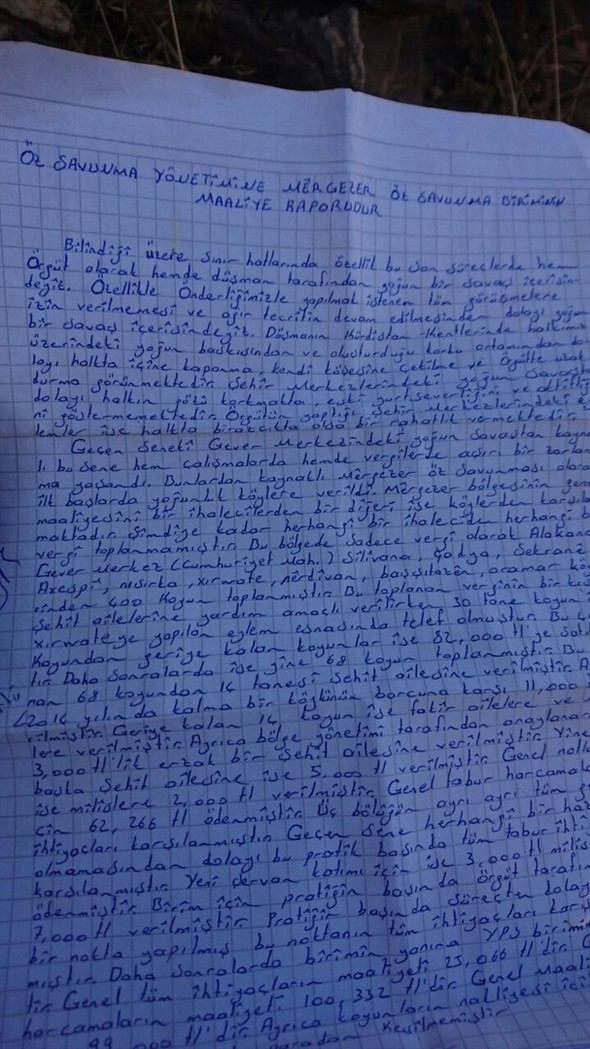 ÖZ SAVUNMA YÖNETİMİNE MĒRGEZER ÖZ SAVUNMA BİRİMİNİN
MAALİYE RAPORUDUR
Bilindiği üzere sınır hatlarında özellik bu son süreçlerde hem
Örgüt olarak hemde düşman tarafından yoğun bir savaş içerisin-
deyiz. Özellikle Önderliğimizle yapılmak istenen tüm görüşmelere
izin verilmemesi ve ağır tecritin devam edilmesinden dolayı yoğun
bir savaş içerisindeyiz. Düşmanın Kürdistan Kentlerinde halkımız
üzerindeki yoğun baskısından ve oluşturduğu korku ortamından do-
layı halkta içine kapanma, kendi köşesine çekilme ve Örgütte uzak
durma görünmektedir. Şehir Merkezlerindeki yoğun savaştan
dolayı halkın gözü korkmakta, eski yurtseverliğini ve aktifliği
ni göstermemektedir. Örgütün yaptığı şehir Merkezlerindeki ey
lemler ise halkta birazcıkta olsa bir rahatlık vermektedir.
Geçen Seneki Gever Merkezindeki yoğun savaştan kayna
lı bu sene hem çalışmalarda hemde vergilerde aşırı bir zorlan
ma yaşandı. Bunlardan kaynaklı Mêrgezer öz Savunması olara
ilk başlarda yoğunluk köylere verildi. Mêrgezer bölgesinin gene
maaliyesini bir ihalecilerden bir diğeri ise köylerden karşıla
maktadır. Şimdiye kadar herhangi bir ihaleciden herhangi b
vergi toplanmamıştır. Bu bölgede sadece vergi olarak Alakan
Gever Merkez (Cumhuriyet Mah.) Silivana, Sekranê
Axespî, nısırka, xırwate, nêrdivan, başşıtazın, aramar kö
rinden 400 Koyun toplanmıştır. Bu toplanan verginin bir kıs
Şehit ailelerine yardım amaçlı verilirken 30 tane koyun
xırwateye yapılan eylem esnasında telef olmuştur. Bu
Koyundan geriye kalan koyunlar ise 82,000 tl'ye satıl
tır. Daha Sonralarda ise yine 68 koyun toplanmıştır. Bu
nan 68 koyundan 14 tanesi Şehit ailesine verilmiştir. A
2014 yılında kalma bir köylünün borcuna karşı 11,000
rilmiştir. Geriye kalan 14 koyun ise fakir ailelere ve
lere verilmiştir. Ayrıca bölge yönetimi tarafından onaylana
3,000 tl'lik erzak bir Şehit ailesine verilmiştir. Yine
başka Şehit ailesine ise 5,000 tl verilmiştir. Genel
ise milislere 2,000 tl verilmiştir. Genel tabur harcama
çin 62,266 tl ödenmiştir. Üç bölüğün ayrı ayrı tüm
ihtiyaçları karşılanmıştır. Geçen Sene herhangi bir haz
olmamasından dolayı bu pratik başında tüm tabur ihti
karşılanmıştır. Yeni şervan katımı için ise 3,000 tl milis
ödenmiştir. Birim için pratiğin başında örgüt tarafın
7,000 tl verilmiştir. Pratiğin başında süreçten dolay
bir nokta yapılmış bu noktanın tüm ihtiyaçları karş
mıştır. Daha Sonralarda birimin yanına YPS birimi
tir. Genel tüm ihtiyaçların maaliyeti 25,066 tl'dir.
harcamaların maaliyeti 100,332 tl'dir. Genel Maali
99,000 tl'dir. Ayrıca koyunların nakliyesi içi
paradan Kesilmemiştir